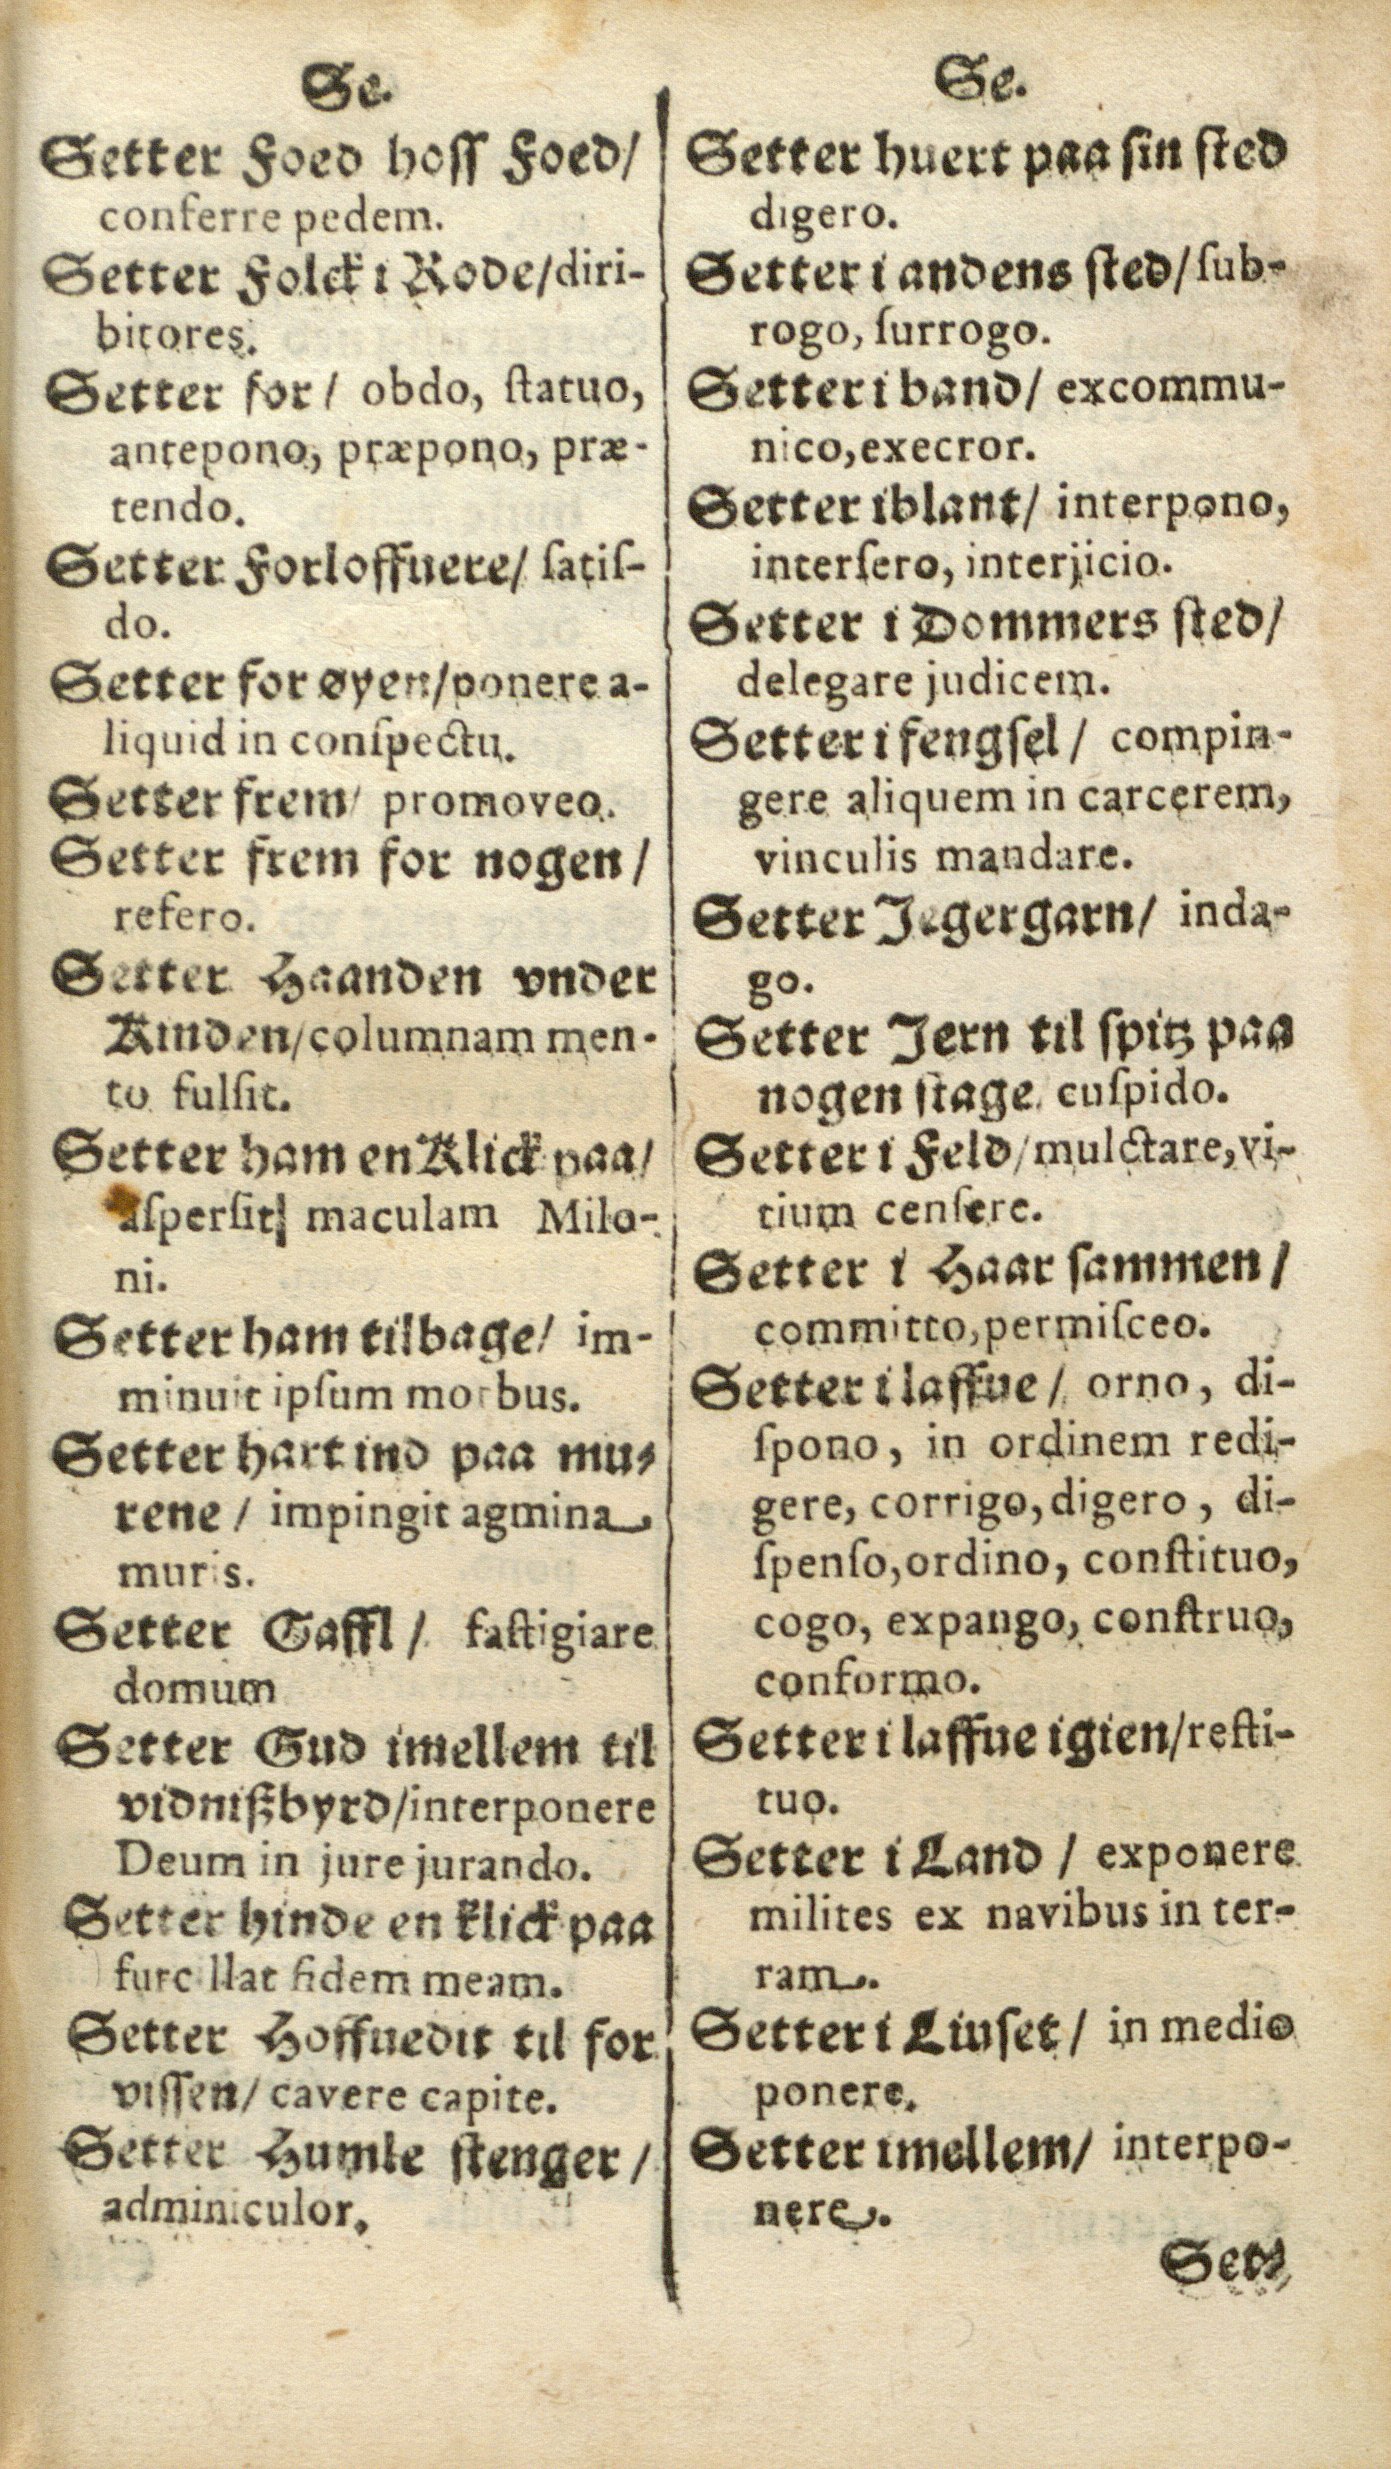 Se.
Setter Foed hoſſ Foed/
conferre pedem.
Setter Folck i Rode/diri-
bitores.
Setter for/ obdo, ſtatuo,
antepono, præpono, præ-
tendo.
Setter Forloffuere/ ſatiſ-
do.
Setter for øyen/ponere a-
liquid in conſpectu.
Setter frem/ promoveo.
Setter frem for nogen/
refero.
Setter Haanden vnder
Kinden/columnam men-
to fulſit.
Setter ham en Klick paa/
aſperſit maculam Milo-
ni.
Setter ham tilbage/ im-
minuit ipſum morbus.
Setter hart ind paa mu-
rene/ impingit agmina
muris.
Setter Gaffl/ faſtigiare
domum
Setter Gud imellem til
vidnißbyrd/interponere
Deum in jure jurando.
Setter hinde en klick paa
furcillat fidem meam.
Setter Hoffuedit til for
viſſen/ cavere capite.
Setter Humle ſtenger/
adminiculor.
Se.
Setter huert paa ſin ſted
digero.
Setter i andens ſted/ſub-
rogo, ſurrogo.
Setter i band/ excommu-
nico,execror.
Setter iblant/ interpono,
interſero, interjicio.
Setter i Dommers ſted/
delegare judicem.
Setter i fengſel/ compin-
gere aliquem in carcerem,
vinculis mandare.
Setter Jegergarn/ inda-
go.
Setter Jern til ſpitz paa
nogen ſtage cuſpido.
Setter i Feld/mulctare,vi-
tium cenſere.
Setter i Haar ſammen/
committo,permiſceo.
Setter i laffue/ orno, di-
ſpono, in ordinem redi-
gere, corrigo,digero, di-
ſpenſo,ordino, conſtituo,
cogo, expango, conſtruo,
conformo.
Setter i laffue igien/reſti-
tuo.
Setter i Land/ exponere
milites ex navibus in ter-
ram.
Setter i Liuſet/ in medio
ponere.
Setter imellem/ interpo-
nere.
Set-